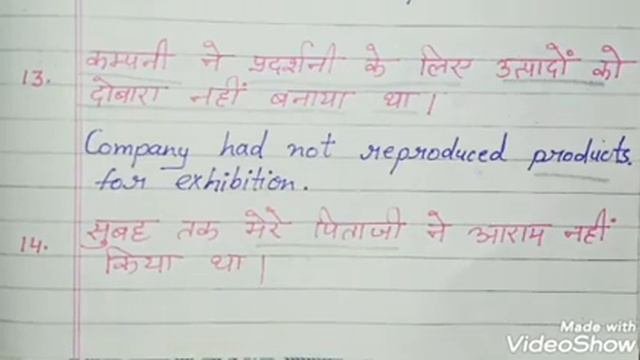 13. कम्पनी ने प्रदर्शनी के लिए उत्पादों को
दोबारा नहीं बनाया था।
Company had not reproduced products.
for exhibition.
14. सुबह तक मेरे पिताजी ने आराम नहीं
किया था।
Made with
VideoShow